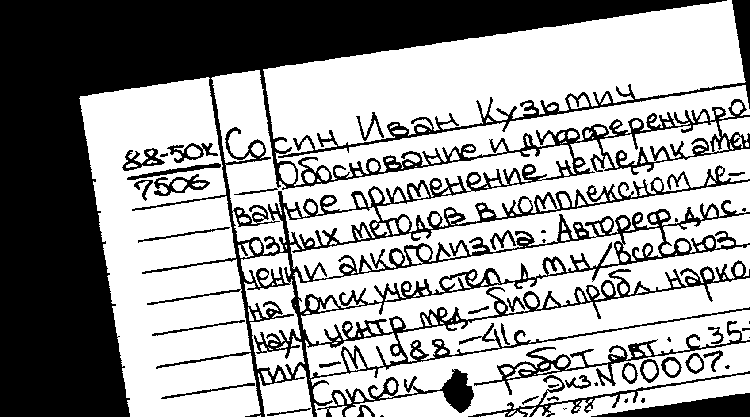 88-50к
7506
Сосин, Иван Кузьмич
Обоснование и дифференциро
ванное применение немедикамен
тозных методов в комплексном ле-
чении алкоголизма: Автореф. дис.
на соиск. учен. степ. д.м.н/Всесоюз.
науч. центр мед.-биол. пробл. нарко
гии.-М, 1988.-41с.
Список работ авт.: с 35-
Экз.N00007.